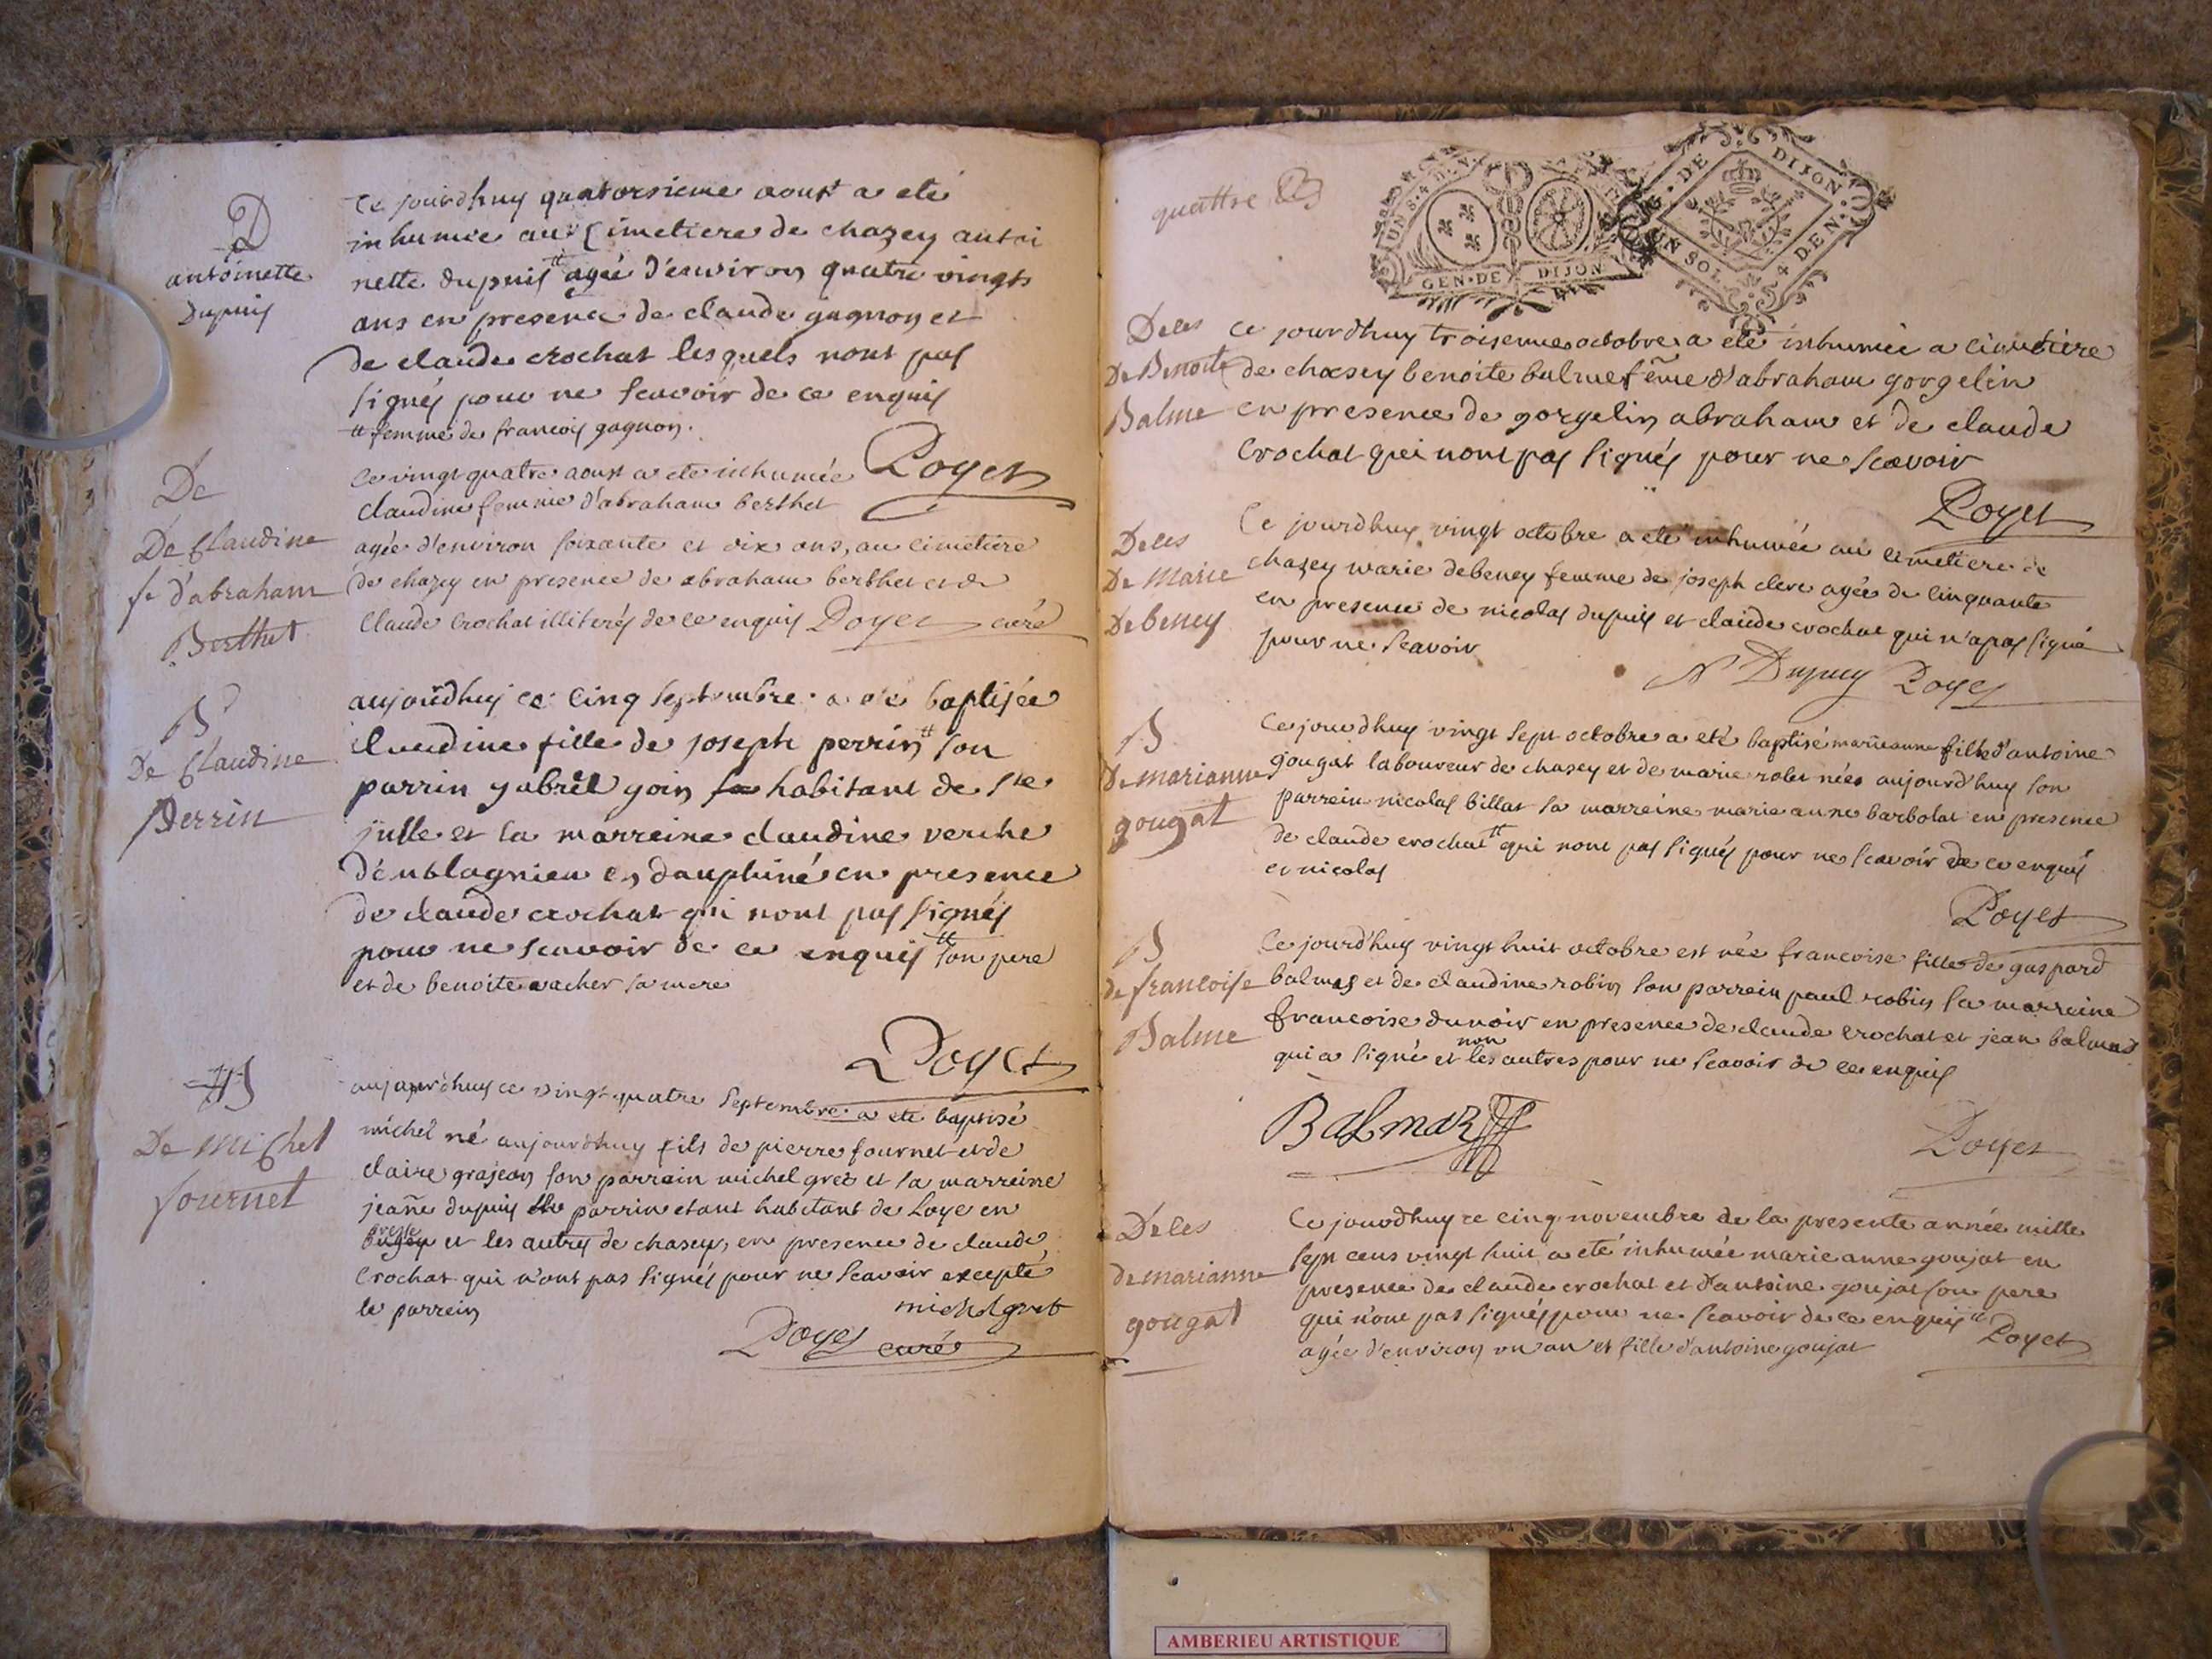 D
antoinette
Dupuis
Ce jourdhuy quatorsieme aoust a eté
inhumée au Cimetiere de chazey antoi
nette dupuis agée d'environ quatre vingts
ans en presence de claude gagnon et
de claude crochat lesquels nont pas
signés pour ne scavoir de ce enquis
femme de francois gagnon.
Poyet
De
De Claudine
fe d'abraham
Berthet
ce vingt quatre aoust a ete inhumée
claudine femme d'abraham berthet
agée d'environ soixante et dix ans, au cimetiere
de chazey en presence de abraham berthet et de
claude crochat illiterés de ce enquis Poyet curé
B
De Claudine
Perrin
aujourdhuy ce cinq septembre a eté baptisée
claudine fille de joseph perrin son
parrin gabriel goin habitant de ste
julle et la marreine claudine verche
d'enblagnieu en dauphiné en presence
de claude crochat qui nont pas signés
pour ne scavoir de ce enquis son pere
et de benoite vacher sa mere
Poyet
B
De Michel
fournet
aujourdhuy ce vingt quatre septembre a eté baptisé
michel né aujourdhuy fils de pierre fournet et de
claire grajean son parrain michel gret et sa marreine
jeañe dupuis le parrin etant habitant de Loye en
bresse et les autres de chasey, en presence de claude
crochat qui n'ont pas signés pour ne scavoir excepté
le parrein
michel gret
Poyet curé
quattre
UN S. 4 D.
GEN. DE DIJON
G. DE DIJON
UN SOL 4 DEN.
Deces
De Benoite
Balme
ce jourdhuy troisieme octobre a eté inhumée a cimetiere
de chasey benoite balme feme d'abraham gorgelin
en presence de gorgelin abraham et de claude
crochat qui nont pas signés pour ne scavoir
Poyet
Deces
De Marie
Debeney
Ce jourdhuy vingt octobre a eté inhumée au cimetiere de
chazey marie debeney femme de joseph clere agée de cinquante
en presence de nicolas dupuis et claude crochat qui n'a pas signé
pour ne scavoir
N Dupuy Poyet
B
De marianne
gougat
Ce jourdhuy vingt sept octobre a eté baptisé marieanne fille d'antoine
gougat laboureur de chasey et de marie rolet née aujourd'huy son
parrein nicolas billat sa marreine marie anne barbolat en presence
de claude crochat qui nont pas signés pour ne scavoir de ce enquis
et nicolas
Poyet
B
de francoise
Balme
Ce jourd'huy vingt huit octobre est née francoise fille de gaspard
balmes et de claudine robin son parrein paul robin sa marreine
francoise dunoir en presence de claude crochat et jean balmes
qui a signé et non les autres pour ne scavoir de ce enquis
BALmaz
Poyet
Deces
de marianne
gougat
Ce jourdhuy ce cinq novembre de la presente année mille
sept cens vingt huit a eté inhumée marie anne goujat en
presence de claude crochat et d'antoine goujat son pere
qui n'ont pas signés pour ne scavoir de ce enquis
agée d'environ un an et fille d'antoine goujat
Poyet
AMBERIEU ARTISTIQUE